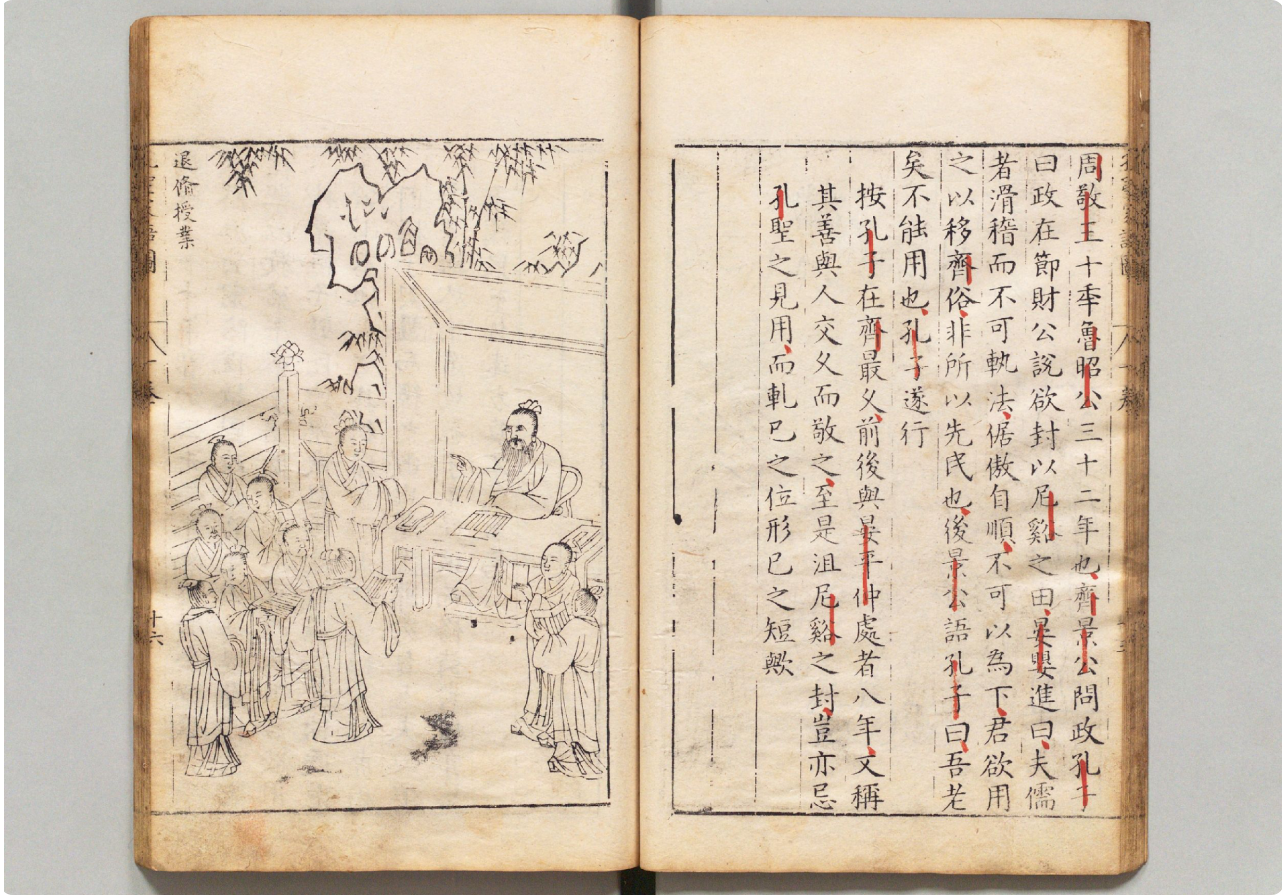 周敬王十年魯昭公三十二年也齊景公問政孔子
曰政在節財公說欲封以尼谿之田晏嬰進曰夫儒
者滑稽而不可執法倨傲自順不可以為下君欲用
之以移齊俗非所以先民也後景公語孔子曰吾老
矣不能用也孔子遂行
按孔子在齊最久前後與晏平仲處者八年又稱
其善與人交久而敬之至是沮尼谿之封豈亦忌
孔聖之見用而軋已之位形已之短歟
退脩授業
十六